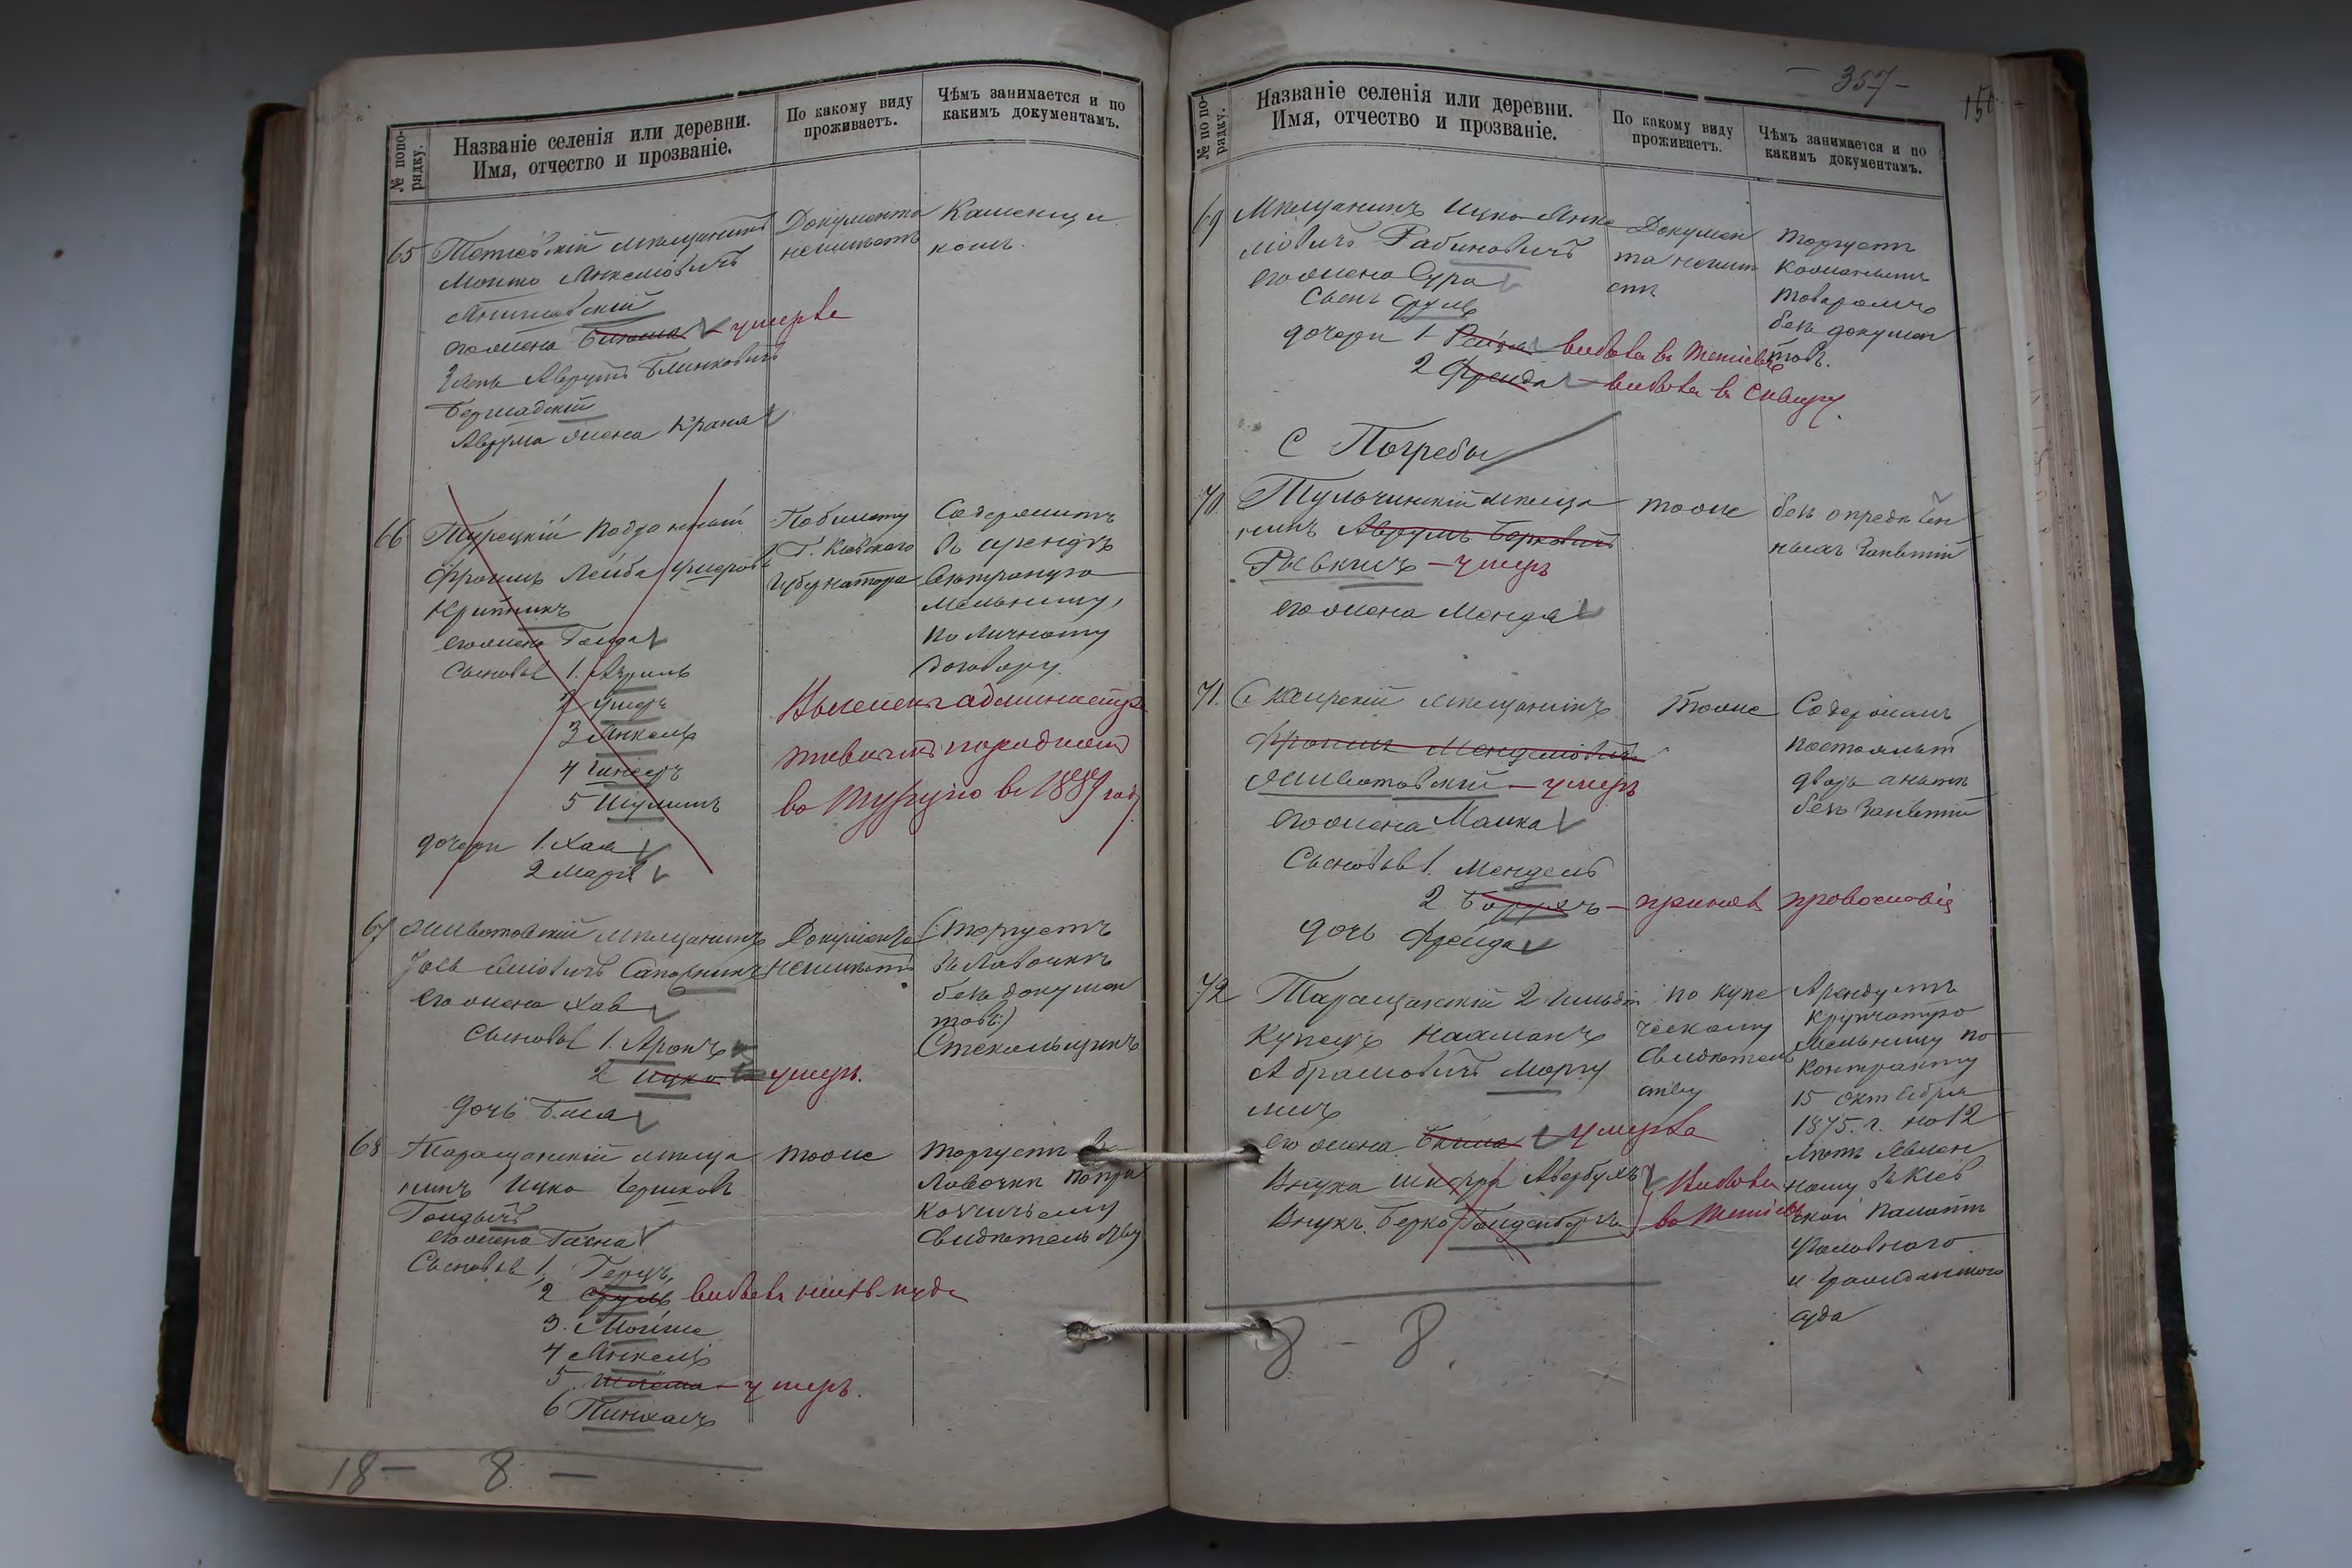 № попо-
рядку.
Названіе селенія или деревни.
Имя, отчество и прозваніе.
По какому виду
проживаетъ.
Чѣмъ занимается и по
какимъ документамъ.
65 Тетіевскій мѣщанинъ
Мошко Янкелiовичъ
его жена Бинма умерла
Зять Аврумъ Блинковичъ
Бершадскій
Аврума жена Краня
Документа
неимѣетъ
Каменщи
комъ.
66 Турецкій подданный
Фроимъ Лейба
его жена Голда
Сыновья 1. Азриль
2 Ушеръ
3 Янкель
5 Шулимъ
дочери 1. Хая
2 Марія
По билету
Г. Кіевскаго
Губернатора
Содержитъ
въ арендѣ
вѣтряную
мельницу,
по личному
договору.
Высланъ администра
тивнымъ порядкомъ
въ Турцію въ 1889 году
67 Животовскій мѣщанинъ
Іось Сапожникъ
его жена Хая
Сыновья 1. Аронъ
2 Ицко умеръ.
дочь Бася
Документа
неимѣетъ
(торгуетъ
въ лавочкѣ
безъ докумен
товъ)
Стекольщикъ
68 Таращанскій мѣща
нинъ Ицко Гершковъ
его жена
Сыновья 1. Герцъ
2 Сруль
3. Мойше
4 Янкель
5 умеръ.
6 Пинхасъ
тоже
Торгуетъ въ
лавочкѣ по при
кащичьему
свидѣтельству
18 - 8 -
- 357 -
№ по по-
рядку.
Названіе селенія или деревни.
Имя, отчество и прозваніе.
По какому виду
проживаетъ.
Чѣмъ занимается и по
какимъ документамъ.
69 Мѣщанинъ Ицко Янке
ліовичъ Рабиновичъ
его жена Сура
сынъ Сруль
дочери 1 Рейза выбыла въ Тетіевъ
2 Фрейда выбыла въ Сквиру
Докумен
та неимѣ
етъ
Торгуетъ
кожанымъ
товаромъ
безъ докумен
товъ.
С Погребы
70 Тульчинскій мѣща
нинъ Аврумъ Берковичъ
Рывкинъ - умеръ
его жена Менда
тоже
безъ опредѣлен
ныхъ занятій
71. Сквирскій мѣщанинъ
Фроимъ Менделіовичъ
Животовскій - умеръ
его жена Малка
Сыновья 1. Мендель
2 Борухъ - принялъ православія
дочь Фрейда
тоже
Содержалъ
постоялый
дворъ а нынѣ
безъ занятій
72 Таращанскій 2 гильдіи
Купецъ Нахманъ
Абрамовичъ Маргу
лисъ
его жена умерла
Внука Авербухъ
Внукъ Берко Гольденбергъ
Выбыли
въ Тетіевъ
по купе
ческому
свидѣтель
ству
Арендуетъ
крупчатую
мельницу по
контракту
15 октября
1875. г. на 12
лѣтъ явлен
ному въ Кіев
ской палатѣ
уголовнаго
и гражданскаго
суда
8 - 8.